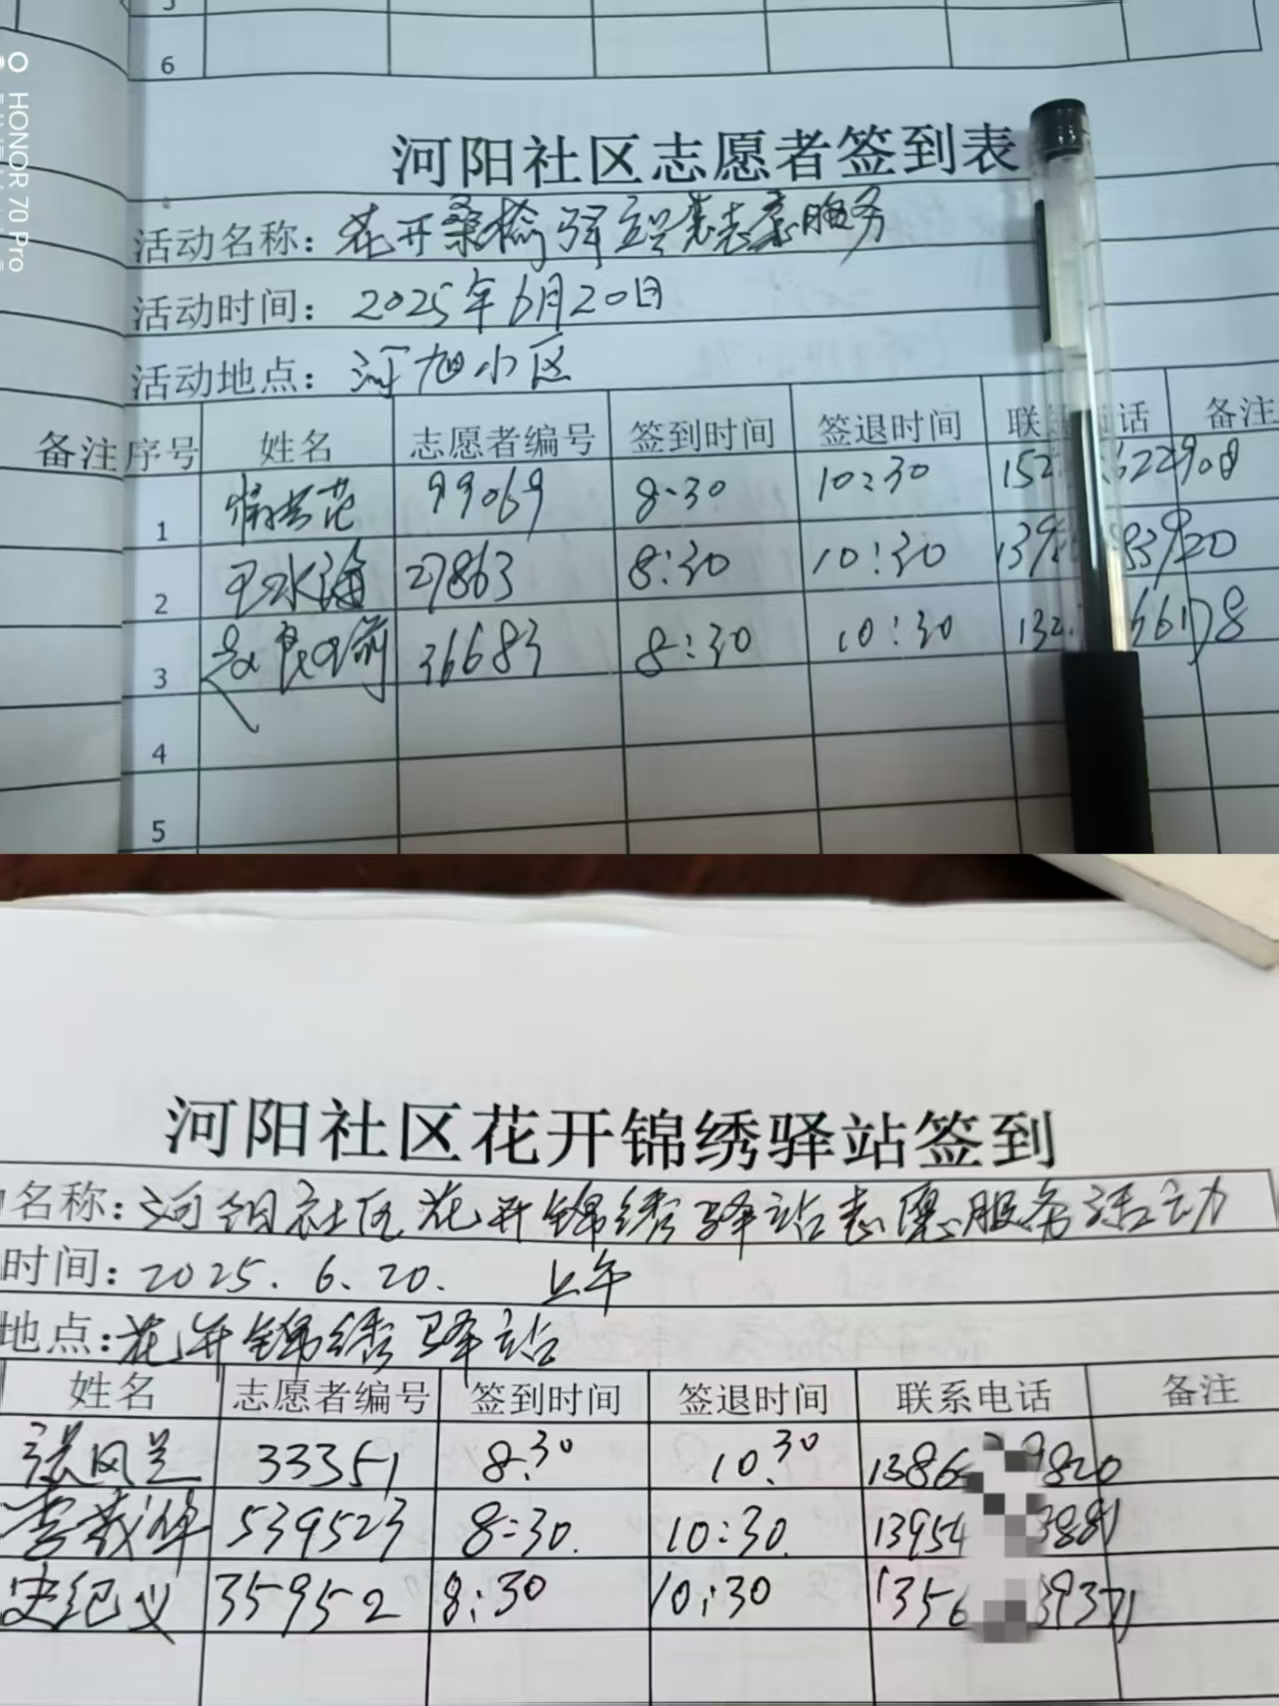 5
6
HONOR 70 Pro
河阳社区志愿者签到表
活动名称：花开桑榆驿站志愿服务
活动时间：2025年6月20日
活动地点：河旭小区
备注 序号 姓名 志愿者编号 签到时间 签退时间 联 电话 备注
1 99069 8:30 10:30 152 622908
2 王永海 27863 8:30 10:30 139 83920
3 36683 8:30 10:30 132 66178
4
5
河阳社区花开锦绣驿站签到
名称：河阳社区花开锦绣驿站志愿服务活动
时间：2025.6.20. 上午
地点：花开锦绣驿站
姓名 志愿者编号 签到时间 签退时间 联系电话 备注
张凤兰 33351 8:30 10:30 1386 9820
539523 8:30. 10:30. 13954 3881
史纪义 35952 8:30 10:30 1356 39371